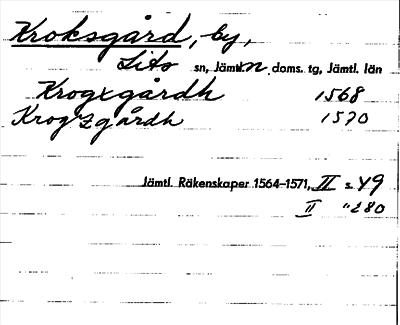 Kroksgård, by,
Lits sn, Jämtl. n. doms. tg, Jämtl. län
Krogxgårdh 1568
Krogzgårdh 1570
Jämtl. Räkenskaper 1564–1571, II s. 49
II " 280